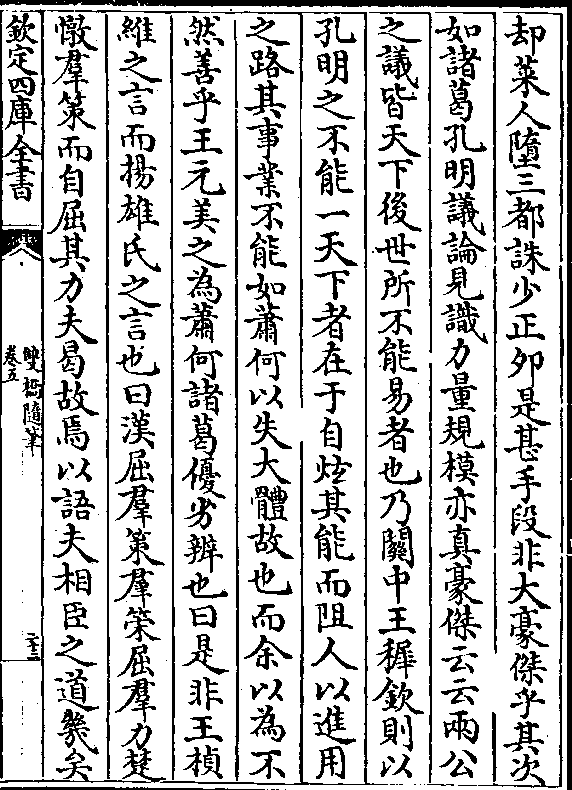 却萊人墮三都誅少正卯是甚手段非大豪傑乎其次
如諸葛孔明議論見識力量規模亦真豪傑云云兩公
之議皆天下後世所不能易者也乃關中王穉欽則以
孔明之不能一天下者在于自炫其能而阻人以進用
之路其事業不能如蕭何以失大體故也而余以為不
然善乎王元美之為蕭何諸葛優劣辨也曰是非王楨
維之言而揚雄氏之言也曰漢屈群策群策屈群力楚
憞群策而自屈其力夫曷故焉以語夫相臣之道幾矣
欽定四庫全書
雙橋隨筆
卷五
二十二